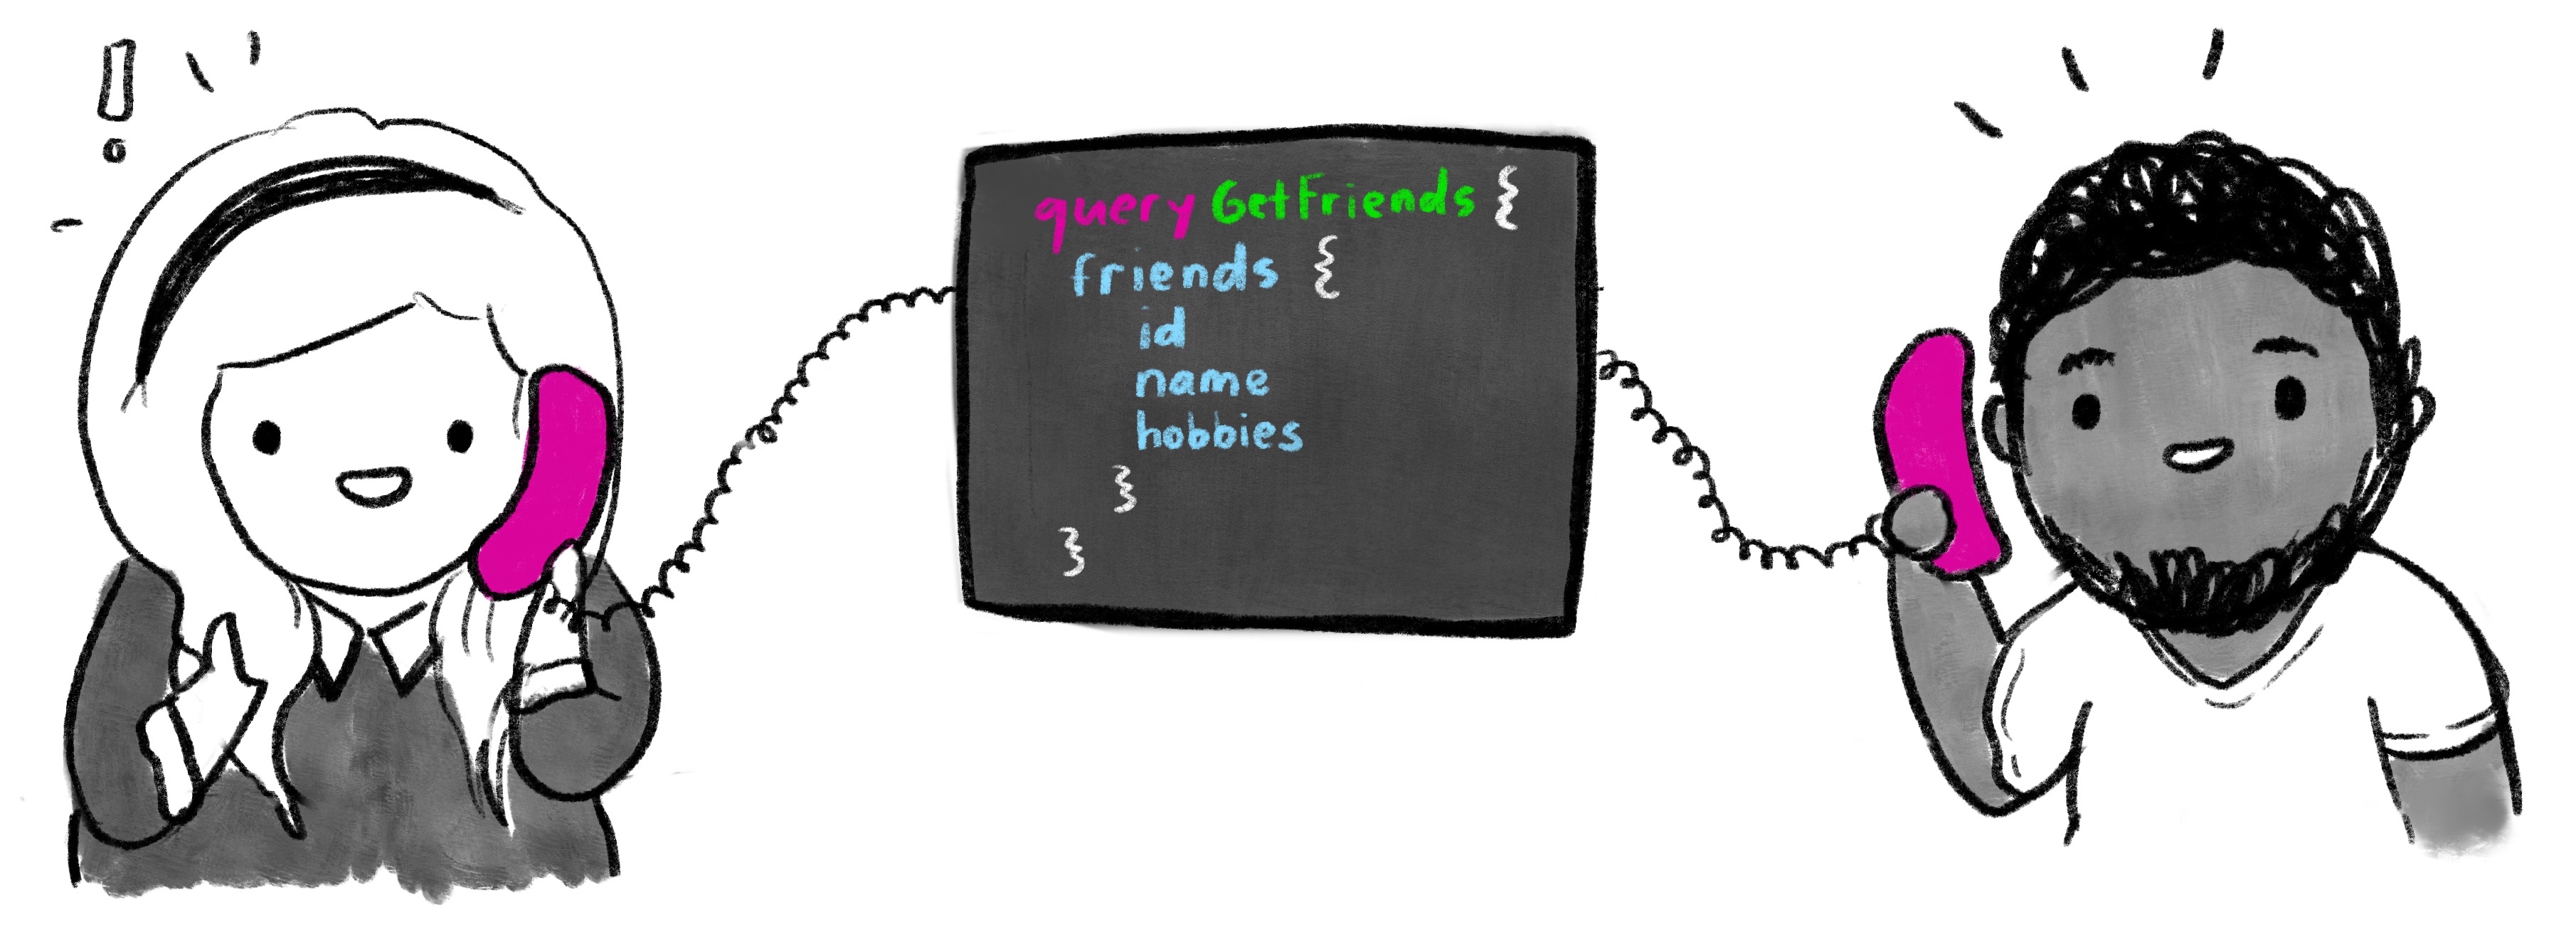 !
query GetFriends {
friends {
id
name
hobbies
}
}